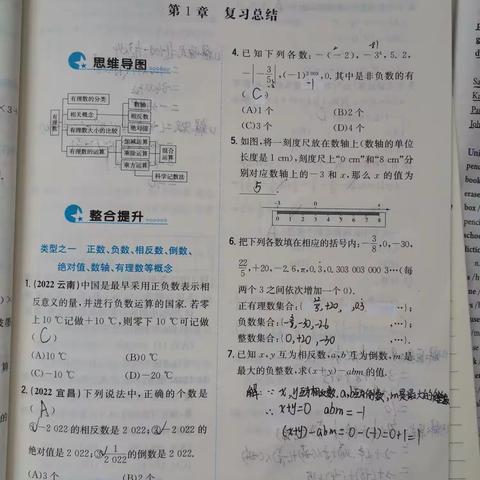 第1章 复习总结
思维导图
有理数
有理数的分类
相关概念
有理数大小的比较
有理数的运算
数轴
相反数
绝对值
加减运算
乘除运算
乘方运算
混合运算
科学记数法
整合提升
类型之一 正数、负数、相反数、倒数、
绝对值、数轴、有理数等概念
1.(2022云南)中国是最早采用正负数表示相
反意义的量,并进行负数运算的国家.若零
上10 ℃记做+10 ℃,则零下10 ℃可记做
( C )
(A)10 ℃ (B)0 ℃
(C)-10 ℃ (D)-20 ℃
2.(2022宜昌)下列说法中,正确的个数是
( A )
①-2 022的相反数是2 022;②|-2 022的
绝对值是2 022;③1/2 022的倒数是2 022.
(A)3个 (B)2个
4.已知下列各数:-(-2),-3⁴,5.2,
-|-3/5|,(-1)²⁰⁰³,0.其中是非负数的有
-1
( C )
(A)1个 (B)2个
(C)3个 (D)4个
5.如图,将一刻度尺放在数轴上(数轴的单位
长度是1 cm),刻度尺上“0 cm”和“8 cm”分
别对应数轴上的-3和x,那么x的值为
5 .
-3 0 x
0 1 2 3 4 5 6 7 8
6.把下列各数填在相应的括号内:-3/8,0,-30,
22/5,+20,-2.6,π,0.3̇,0.303 003 000 3…(每
两个3之间依次增加一个0).
正有理数集合:{22/5,+20, 0.3 …};
负数集合:{-3/8,-30,-2.6 …};
整数集合:{0,+20,-30 …}.
7.已知x,y互为相反数,a,b互为倒数,m是
最大的负整数,求(x+y)-abm的值.
解 ∵ x,y互为相反数,a,b互为倒数,m是最大的负整数
∴ x+y=0 abm=-1
(x+y)-abm=0-(-1)=0+1=1